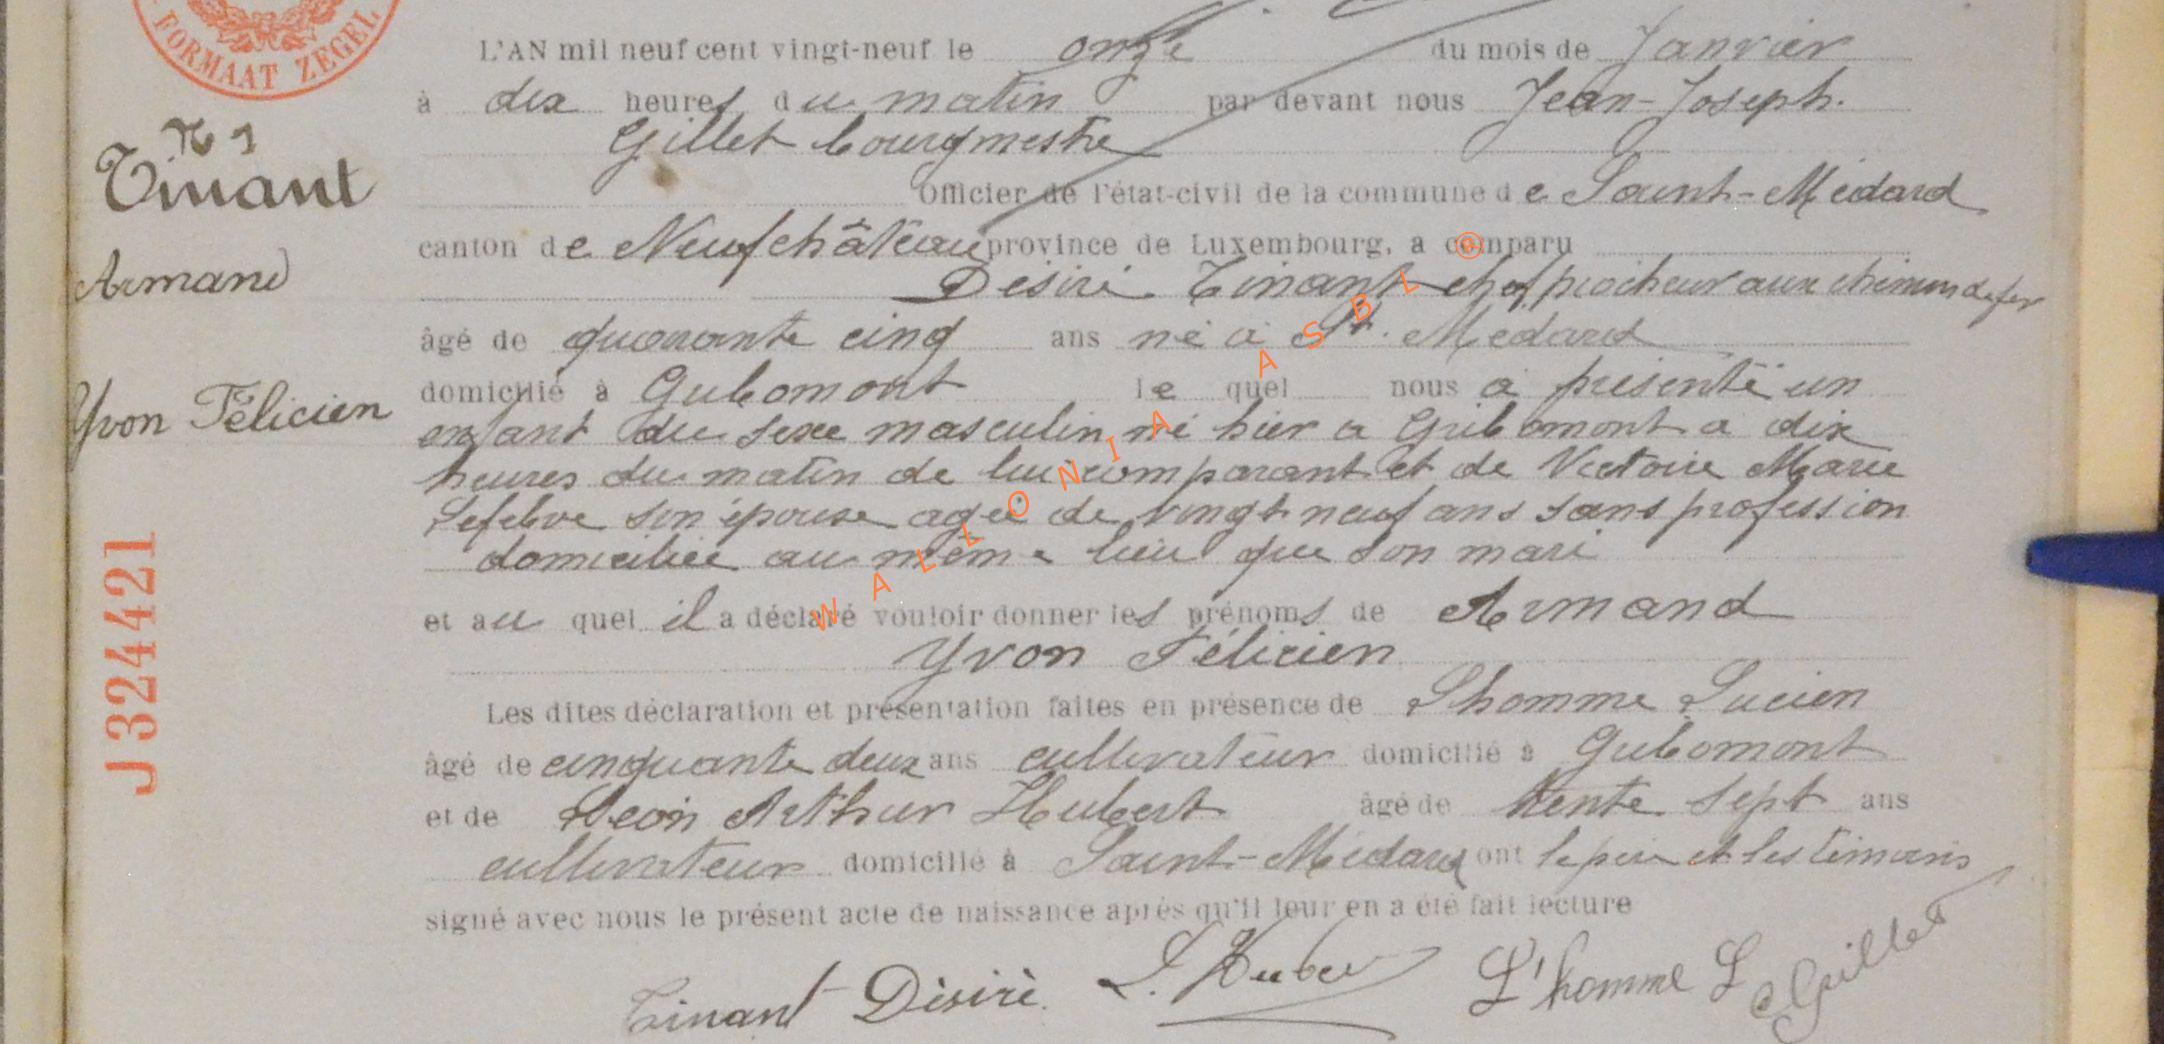 FORMAAT ZEGEL
L'AN mil neuf cent vingt-neuf le onze du mois de Janvier
à dix heures du matin par devant nous Jean-Joseph
Gillet bourgmestre
Officier de l'état-civil de la commune de Saint-Médard
canton de Neufchâteau province de Luxembourg, a comparu
Désiré Tinant chef piocheur aux chemins de fer
âgé de quarante cinq ans né à St. Médard
domicilié à Gribomont le quel nous a présenté un
enfant du sexe masculin né hier a Gribomont a dix
heures du matin de lui comparant et de Victoire Marie
Lefebve son épouse agée de vingt neuf ans sans profession
domiciliée au même lieu que son mari
et au quel il a déclaré vouloir donner les prénoms de Armand
Yvon Félicien
Les dites déclaration et présentation faites en présence de Lhomme Lucien
âgé de cinquante deux ans cultivateur domicilié à Gribomont
et de Léon Arthur Hubert âgé de trente sept ans
cultivateur domicilié à Saint-Médard ont le père et les témoins
signé avec nous le présent acte de naissance après qu'il leur en a été fait lecture
Tinant Désiré L. Hubert L'homme L Gillet
N 1
Tinant
Armand
Yvon Félicien
J 324421
WALLONIA ASBL ®